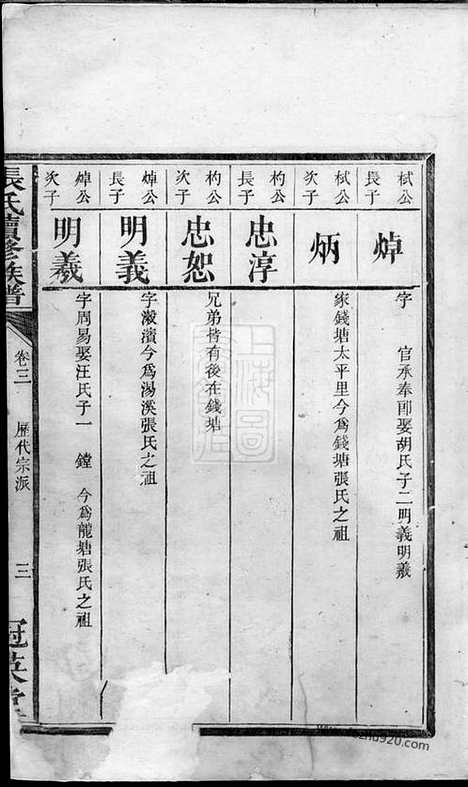 栻公長子
焯
字　官承奉郎娶胡氏子二明義明羲
栻公次子
炳
家錢塘太平里今爲錢塘張氏之祖
杓公長子
忠淳
杓公次子
忠恕
兄弟皆有後在錢塘
焯公長子
明義
字澂濱今爲湯溪張氏之祖
焯公次子
明羲
字周易娶汪氏子一　鏜　今爲龍塘張氏之祖
張氏續修族譜
卷三　歷代宗派
三
冠英堂